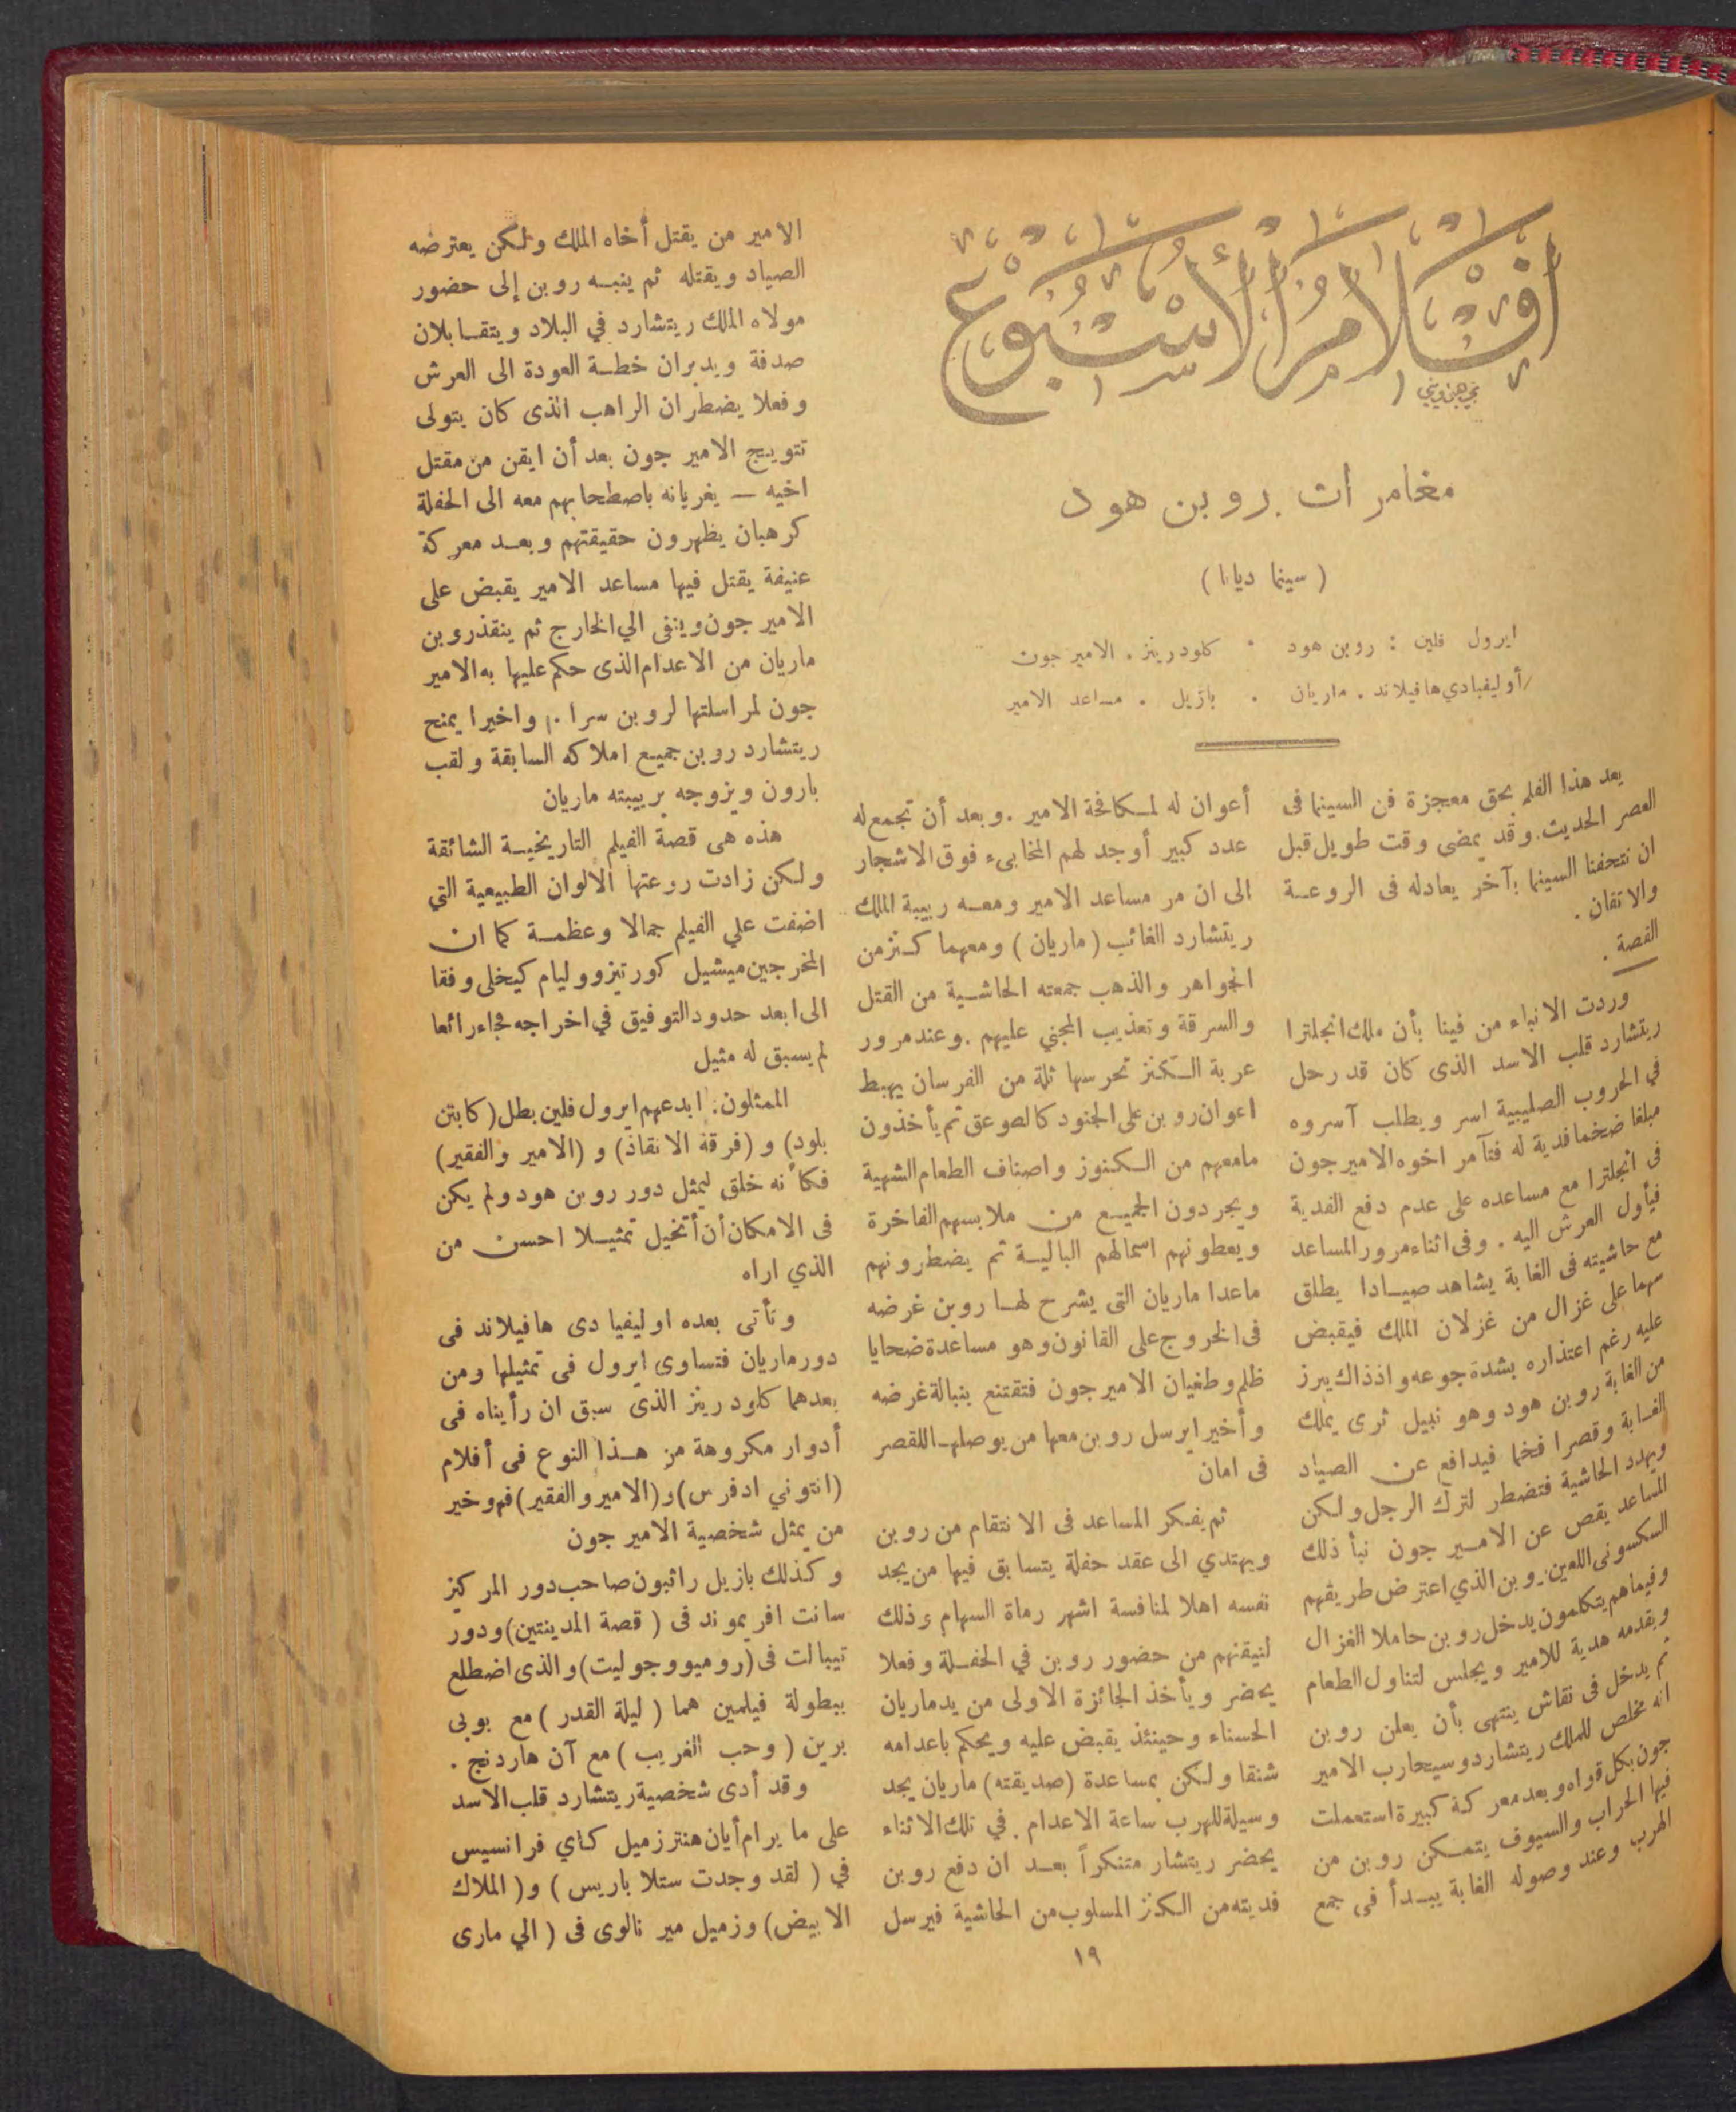 أفلام الأسبوع
مغامرات روبن هود
( سينما ديانا )
ايرول فلين : روبن هود . كلودرينز . الامير جون
أوليفيادي هافيلاند . ماريان . بازيل . مساعد الامير
يعد هذا الفلم بحق معجزة فن السينما فى
العصر الحديث . وقد يمضى وقت طويل قبل
ان تتحفنا السينما بآخر يعادله فى الروعة
والاتقان .
القصة .
وردت الانباء من فينا بأن ملك انجلترا
ريتشارد قلب الاسد الذى كان قد رحل
في الحروب الصليبية اسر ويطلب آسروه
مبلغا ضخما فدية له فتآمر اخوه الامير جون
فى انجلترا مع مساعده على عدم دفع الفدية
فيأول العرش اليه . وفى اثناء مرور المساعد
مع حاشيته فى الغابة يشاهد صيادا يطلق
سهما على غزال من غزلان الملك فيقبض
عليه رغم اعتذاره بشدة جوعه واذذاك يبرز
من الغابة روبن هود وهو نبيل ثرى يملك
الغابة وقصرا فخما فيدافع عن الصياد
ويهدد الحاشية فتضطر لترك الرجل ولكن
المساعد يقص عن الامير جون نبأ ذلك
السكسونى اللعين روبن الذي اعترض طريقهم
وفيما هم يتكلمون يدخل روبن حاملا الغزال
ويقدمه هدية للامير ويجلس لتناول الطعام
ثم يدخل فى نقاش ينتهى بأن يعلن روبن
انه مخلص للملك ريتشارد وسيحارب الامير
جون بكل قواه وبعد معركة كبيرة استعملت
فيها الحراب والسيوف يتمكن روبن من
الهرب وعند وصوله الغابة يبدأ فى جمع
أعوان له لمكافحة الامير . وبعد أن تجمع له
عدد كبير أوجد لهم المخابىء فوق الاشجار
الى ان مر مساعد الامير ومعه ربيبة الملك
ريتشارد الغائب ( ماريان ) ومعهما كنز من
الجواهر والذهب جمعته الحاشية من القتل
والسرقة وتعذيب المجني عليهم . وعند مرور
عربة الكنز تحرسها ثلة من الفرسان يهبط
اعوان روبن على الجنود كالصوعق ثم يأخذون
مامعهم من الكنوز واصناف الطعام الشهية
ويجردون الجميع من ملابسهم الفاخرة
ويعطونهم اسمالهم البالية ثم يضطرونهم
ماعدا ماريان التى يشرح لها روبن غرضه
فى الخروج على القانون وهو مساعدة ضحايا
ظلم وطغيان الامير جون فتقتنع بنبالة غرضه
وأخيرا يرسل روبن معها من يوصلها للقصر
فى امان
ثم يفكر المساعد فى الانتقام من روبن
ويهتدي الى عقد حفلة يتسابق فيها من يجد
نفسه اهلا لمنافسة اشهر رماة السهام وذلك
لتيقنهم من حضور روبن في الحفلة وفعلا
يحضر ويأخذ الجائزة الاولى من يد ماريان
الحسناء وحينئذ يقبض عليه ويحكم باعدامه
شنقا ولكن بمساعدة (صديقته) ماريان يجد
وسيلة للهرب ساعة الاعدام . في تلك الاثناء
يحضر ريتشار متنكراً بعد ان دفع روبن
فديته من الكنز المسلوب من الحاشية فيرسل
الامير من يقتل أخاه الملك ولكن يعترضه
الصياد ويقتله ثم ينبه روبن إلى حضور
مولاه الملك ريتشارد في البلاد ويتقابلان
صدفة ويدبران خطة العودة الى العرش
وفعلا يضطران الراهب الذى كان يتولى
تتويج الامير جون بعد أن ايقن من مقتل
اخيه — يغريانه باصطحابهم معه الى الحفلة
كرهبان يظهرون حقيقتهم وبعد معركة
عنيفة يقتل فيها مساعد الامير يقبض على
الامير جون وينفى الي الخارج ثم ينقذ روبن
ماريان من الاعدام الذى حكم عليها به الامير
جون لمراسلتها لروبن سرا . واخيرا يمنح
ريتشارد روبن جميع املاكه السابقة ولقب
بارون ويزوجه بربيبته ماريان
هذه هى قصة الفيلم التاريخية الشائقة
ولكن زادت روعتها الألوان الطبيعية التي
اضفت علي الفيلم جمالا وعظمة كما ان
المخرجين ميشيل كورتيز ووليام كيخلى وفقا
الى ابعد حدود التوفيق في اخراجه فجاء رائعا
لم يسبق له مثيل
الممثلون : ابدعهم ايرول فلين بطل (كابتن
بلود) و (فرقة الانقاذ) و (الامير والفقير)
فكأنه خلق ليمثل دور روبن هود ولم يكن
فى الامكان أن أتخيل تمثيلا احسن من
الذي اراه
وتأتى بعده اوليفيا دى هافيلاند فى
دور ماريان فتساوى ايرول فى تمثيلها ومن
بعدهما كلود رينز الذى سبق ان رأيناه فى
أدوار مكروهة من هذا النوع فى أفلام
(انتوني ادفرس) و (الامير والفقير) فهو خير
من يمثل شخصية الامير جون
وكذلك بازيل راثبون صاحب دور المركيز
سانت افريموند فى ( قصة المدينتين) ودور
تيبالت فى (روميو وجوليت) والذى اضطلع
ببطولة فيلمين هما ( ليلة القدر ) مع بوبى
برين ( وحب الغريب ) مع آن هاردنج .
وقد أدى شخصية ريتشارد قلب الاسد
على ما يرام أيان هنتر زميل كاي فرانسيس
في ( لقد وجدت ستلا باريس ) و ( الملاك
الابيض ) وزميل مير نالوى فى ( الي مارى
١٩